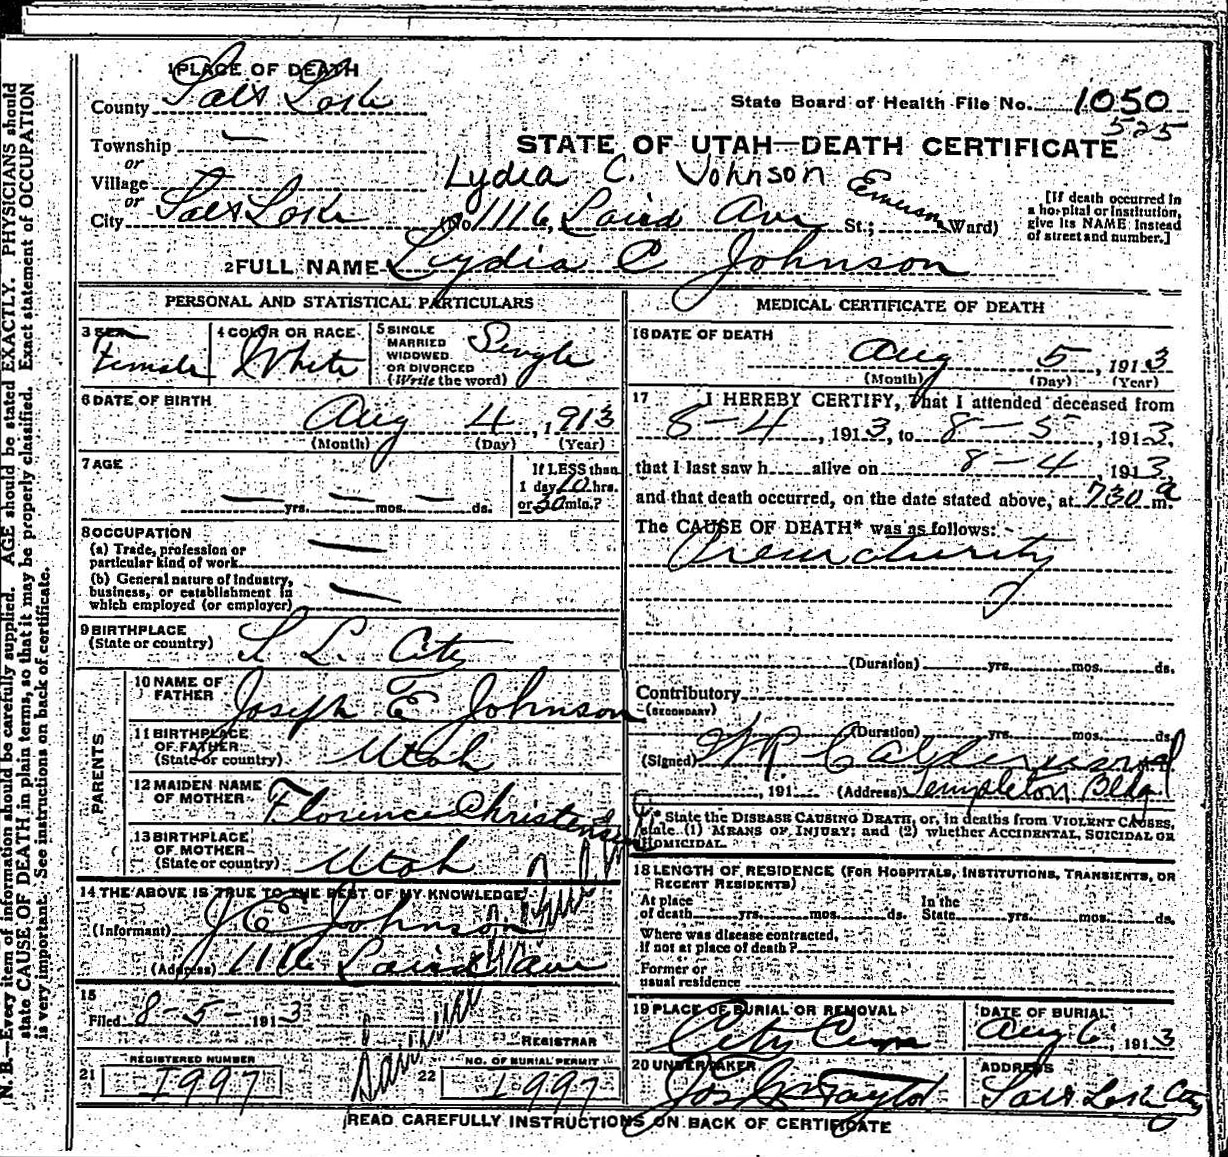 1 PLACE OF DEATH
County Salt Lake
State Board of Health File No. 1050
525
Township —
or
STATE OF UTAH—DEATH CERTIFICATE
Village
or
Lydia C. Johnson
City Salt Lake No. 1116, Laird Ave St.; Emerson Ward)
[If death occurred in
a hospital or institution,
give its NAME instead
of street and number.]
2 FULL NAME Lydia C Johnson
PERSONAL AND STATISTICAL PARTICULARS
3 SEX
Female
4 COLOR OR RACE
White
5 SINGLE
MARRIED
WIDOWED
OR DIVORCED
(Write the word)
Single
6 DATE OF BIRTH
Aug 4, 1913
(Month) (Day) (Year)
7 AGE
— yrs. — mos. — ds.
If LESS than
1 day 10 hrs.
or 30 min.?
8 OCCUPATION
(a) Trade, profession or
particular kind of work —
(b) General nature of industry,
business, or establishment in
which employed (or employer) —
9 BIRTHPLACE
(State or country) S. L. City
PARENTS
10 NAME OF
FATHER Joseph E Johnson
11 BIRTHPLACE
OF FATHER
(State or country) Utah
12 MAIDEN NAME
OF MOTHER Florence Christensen
13 BIRTHPLACE
OF MOTHER
(State or country) Utah
14 THE ABOVE IS TRUE TO THE BEST OF MY KNOWLEDGE
(Informant) J E Johnson
(Address) 1116 Laird Ave
15
Filed 8-5-1913
REGISTRAR
REGISTERED NUMBER
21 1997
NO. OF BURIAL PERMIT
22 1997
MEDICAL CERTIFICATE OF DEATH
16 DATE OF DEATH
Aug 5, 1913
(Month) (Day) (Year)
17 I HEREBY CERTIFY, That I attended deceased from
8-4, 1913, to 8-5, 1913,
that I last saw h alive on 8-4 1913
and that death occurred, on the date stated above, at 730 a m.
The CAUSE OF DEATH* was as follows:
Prematurity
(Duration) yrs. mos. ds.
Contributory
(SECONDARY)
(Duration) yrs. mos. ds.
(Signed) W R Calderwood
, 191 (Address) Templeton Bldg
* State the DISEASE CAUSING DEATH, or, in deaths from VIOLENT CAUSES,
state (1) MEANS OF INJURY; and (2) whether ACCIDENTAL, SUICIDAL OR
HOMICIDAL.
18 LENGTH OF RESIDENCE (FOR HOSPITALS, INSTITUTIONS, TRANSIENTS, OR
RECENT RESIDENTS)
At place
of death yrs. mos. ds.
In the
State yrs. mos. ds.
Where was disease contracted,
if not at place of death?
Former or
usual residence
19 PLACE OF BURIAL OR REMOVAL
City Cem
DATE OF BURIAL
Aug 6, 1913
20 UNDERTAKER
Jos Taylor
ADDRESS
Salt Lake City
READ CAREFULLY INSTRUCTIONS ON BACK OF CERTIFICATE
N. B.—Every item of information should be carefully supplied. AGE should be stated EXACTLY. PHYSICIANS should
state CAUSE OF DEATH in plain terms, so that it may be properly classified. Exact statement of OCCUPATION
is very important. See instructions on back of certificate.